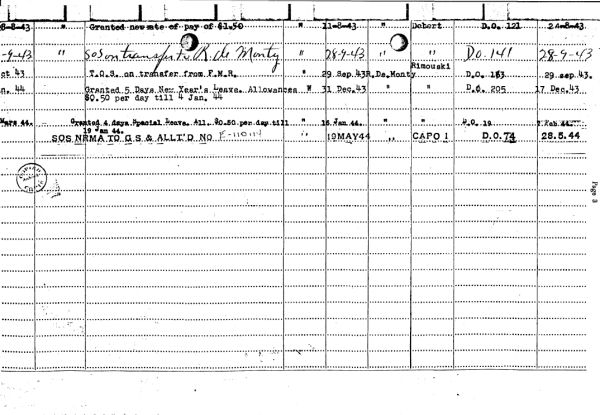 8-8-43 " Granted new rate of pay of $1.50 " 11-8-43 " Debert D.O. 121 24-8-43
-9-43 " SOS on transfer to R. de Monty " 28-9-43 " " D.O. 141 28-9-43
Rimouski
ct. 43 T.O.S. on transfer from F.M.R. " 29 Sep. 43 R. De. Monty D.O. 153 29 sep. 43.
n. 44 Granted 5 Days New Year's Leave. Allowances " 31 Dec. 43 " " D.O. 205 17 Dec. 43
$0.50 per day till 4 Jan. 44
Mars 44. Granted 4 days Special Leave. All. $0.50 per day till 16 Jan. 44 " " D.O. 19
19 Jan 44.
SOS NRMA TO G S & ALLT'D NO E-110114 19 MAY 44 " CAPO 1 D.O. 74 28.5.44
Page 3